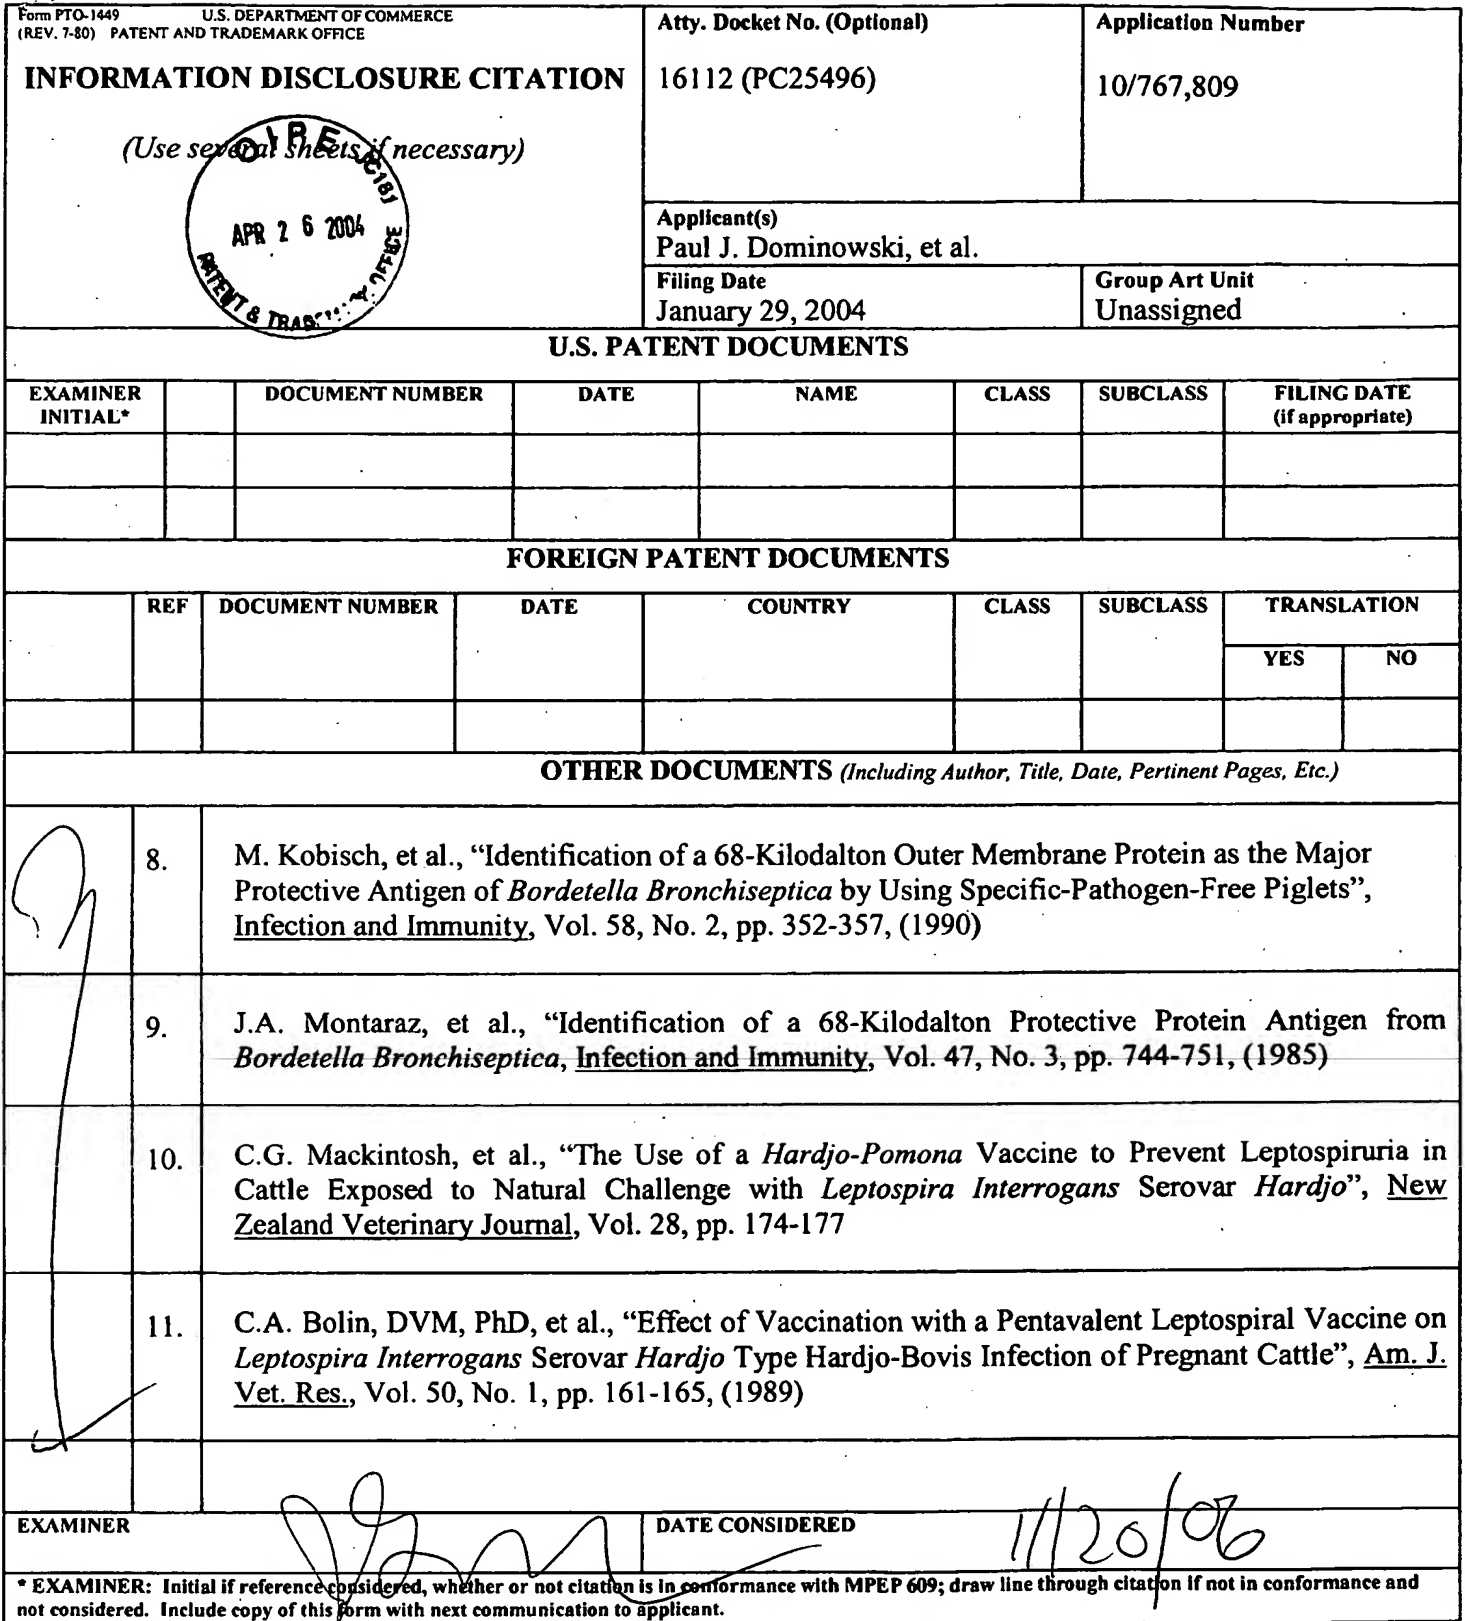 Form PTO-1449 U.S. DEPARTMENT OF COMMERCE
(REV. 7-80) PATENT AND TRADEMARK OFFICE
INFORMATION DISCLOSURE CITATION
(Use several sheets if necessary)
OIPE JC181
APR 26 2004
PATENT & OFFICE
Atty. Docket No. (Optional)
16112 (PC25496)
Application Number
10/767,809
Applicant(s)
Paul J. Dominowski, et al.
Filing Date
January 29, 2004
Group Art Unit
Unassigned
U.S. PATENT DOCUMENTS
EXAMINER INITIAL* DOCUMENT NUMBER DATE NAME CLASS SUBCLASS FILING DATE (if appropriate)
FOREIGN PATENT DOCUMENTS
REF DOCUMENT NUMBER DATE COUNTRY CLASS SUBCLASS TRANSLATION
YES NO
OTHER DOCUMENTS (Including Author, Title, Date, Pertinent Pages, Etc.)
8. M. Kobisch, et al., “Identification of a 68-Kilodalton Outer Membrane Protein as the Major
Protective Antigen of Bordetella Bronchiseptica by Using Specific-Pathogen-Free Piglets”,
Infection and Immunity, Vol. 58, No. 2, pp. 352-357, (1990)
9. J.A. Montaraz, et al., “Identification of a 68-Kilodalton Protective Protein Antigen from
Bordetella Bronchiseptica, Infection and Immunity, Vol. 47, No. 3, pp. 744-751, (1985)
10. C.G. Mackintosh, et al., “The Use of a Hardjo-Pomona Vaccine to Prevent Leptospiruria in
Cattle Exposed to Natural Challenge with Leptospira Interrogans Serovar Hardjo”, New
Zealand Veterinary Journal, Vol. 28, pp. 174-177
11. C.A. Bolin, DVM, PhD, et al., “Effect of Vaccination with a Pentavalent Leptospiral Vaccine on
Leptospira Interrogans Serovar Hardjo Type Hardjo-Bovis Infection of Pregnant Cattle”, Am. J.
Vet. Res., Vol. 50, No. 1, pp. 161-165, (1989)
EXAMINER
DATE CONSIDERED 11/20/06
* EXAMINER: Initial if reference considered, whether or not citation is in conformance with MPEP 609; draw line through citation if not in conformance and
not considered. Include copy of this form with next communication to applicant.